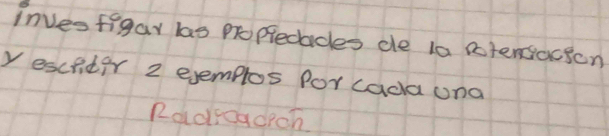 investigar las propiedades de la Potenciacion
y escribir 2 ejemplos por cada una
Radicacion